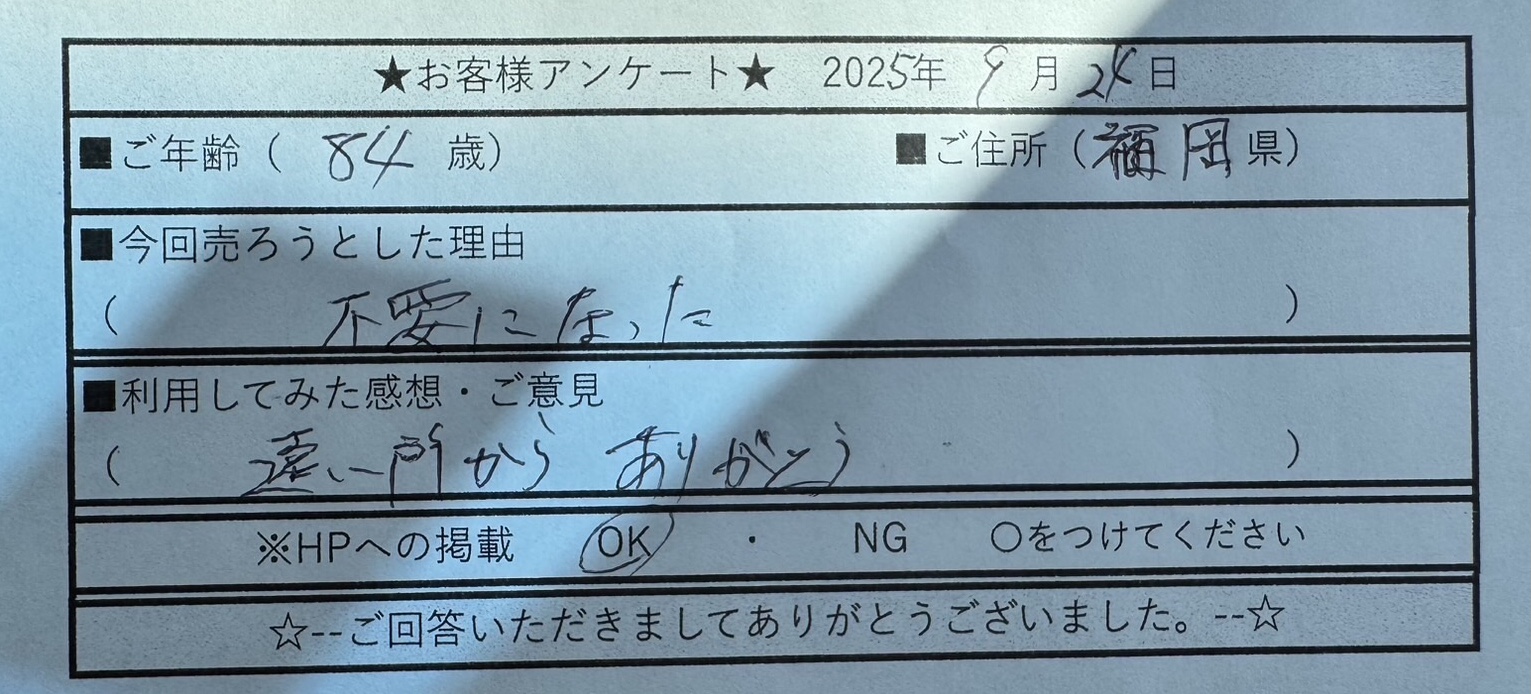 ★お客様アンケート★ 2025年 9月24日
■ご年齢（ 84 歳） ■ご住所（福岡県）
■今回売ろうとした理由
（ 不要になった ）
■利用してみた感想・ご意見
（ 遠い所から ありがとう ）
※HPへの掲載 OK ・ NG 〇をつけてください
☆--ご回答いただきましてありがとうございました。--☆